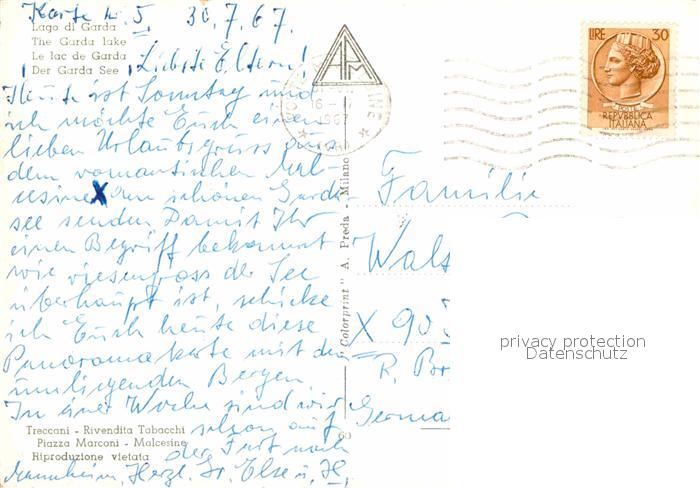 Karte № 5    30.7.67.
Lago di Garda
The Garda lake
Le lac de Garda
Der Garda See
Liebste Eltern!
Heute ist Sonntag und
ich möchte Euch einen
lieben Urlaubsgruss aus
dem romantischen Mal-
cesine X am schönen Garda-
see senden. Damit Ihr
einen Begriff bekommt
wie riesengross der See
überhaupt ist, schicke
ich Euch heute diese
Panoramakarte mit den
umliegenden Bergen.
In einer Woche sind wir
schon auf
der Fart nach
Mannheim. Herzl. Gr. Else u. H.
Treccani - Rivendita Tabacchi
Piazza Marconi - Malcesine
Riproduzione vietata
60
"Colorprint" A. Preda - Milano
APM
16 -
1967
LIRE 30
POSTE
REPVBBLICA
ITALIANA
Familie
Wals
X 90
R. Br
Germa
privacy protection
Datenschutz